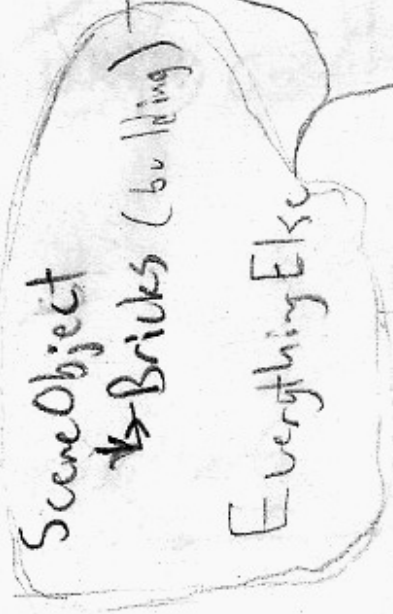 SceneObject
↳Bricks (building)
EverythingElse